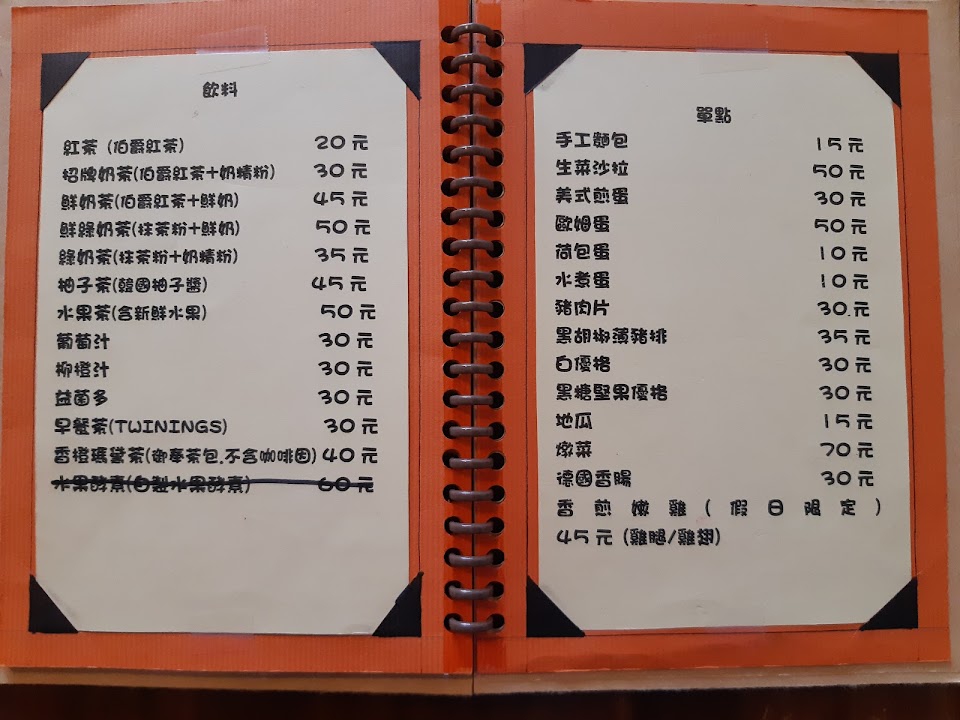 飲料
紅茶 (伯爵紅茶) 20 元
招牌奶茶(伯爵紅茶+奶精粉) 30 元
鮮奶茶(伯爵紅茶+鮮奶) 45 元
鮮綠奶茶(抹茶粉+鮮奶) 50 元
綠奶茶(抹茶粉+奶精粉) 35 元
柚子茶(韓國柚子醬) 45 元
水果茶(含新鮮水果) 50 元
葡萄汁 30 元
柳橙汁 30 元
益菌多 30 元
早餐茶(TWININGS) 30 元
香橙瑪黛茶(御奉茶包.不含咖啡因) 40 元
水果酵素(自製水果酵素) 60 元
單點
手工麵包 15 元
生菜沙拉 50 元
美式煎蛋 30 元
歐姆蛋 50 元
荷包蛋 10 元
水煮蛋 10 元
豬肉片 30 元
黑胡椒薄豬排 35 元
白優格 30 元
黑糖堅果優格 30 元
地瓜 15 元
燉菜 70 元
德國香腸 30 元
香煎嫩雞(假日限定)
45 元 (雞腿/雞翅)